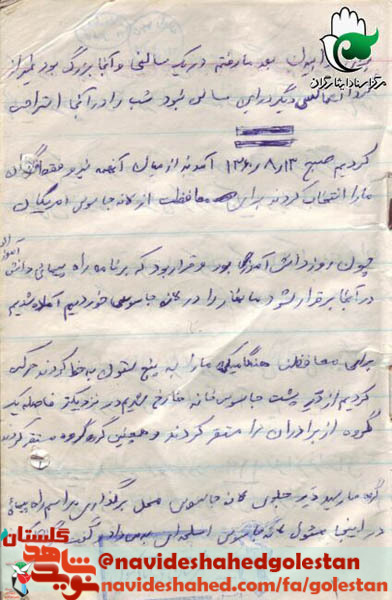 مرکز اسناد ایثارگران
بعد ما رفتیم در یک سالنی و آنجا بزرگ بود بغیر از
گروه ما کسی دیگر در این سالن نبود شب را در آنجا استراحت
کردیم صبح ۱۳ ر ۸ ر ۱۳۶۰ آمدند از میان آنهمه نیرو فقط گروه
ما را انتخاب کردند برای محافظت از لانه جاسوسی امریکا
چون روز دانش آموز بود و قرار بود که برنامه راه پیمائی دانش آموزان
در آنجا برقرار شود ما ناهار را در لانه جاسوسی خوردیم آماده شدیم
برای محافظت هنگامیکه ما را به پنج ستون به خط کردند حرکت
کردیم از در پشت جاسوس خانه خارج شدیم در نزدیک فاصله یک
گروه از برادران را مستقر کردند و همچنین گروه گروه مستقر کردند
گروه ما رسید در جلوی لانه جاسوسی محل برگذاری مراسم راه پیمائی
در اینجا مسئول لانه جاسوسی اسلحه‌ای به من داد گفت
نوید شاهد گلستان
@navideshahedgolestan
navideshahed.com/fa/golestan